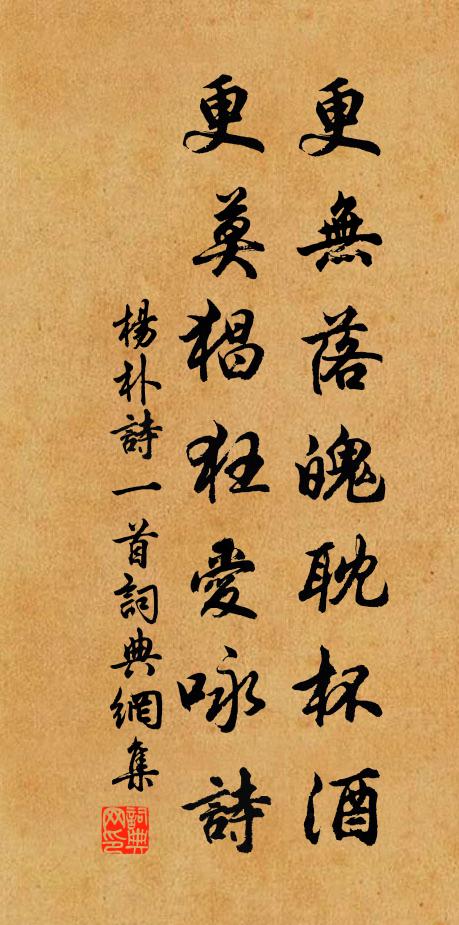 更無落魄耽杯酒
更莫猖狂愛咏詩
楊朴詩一首詞典網集
詞典網印